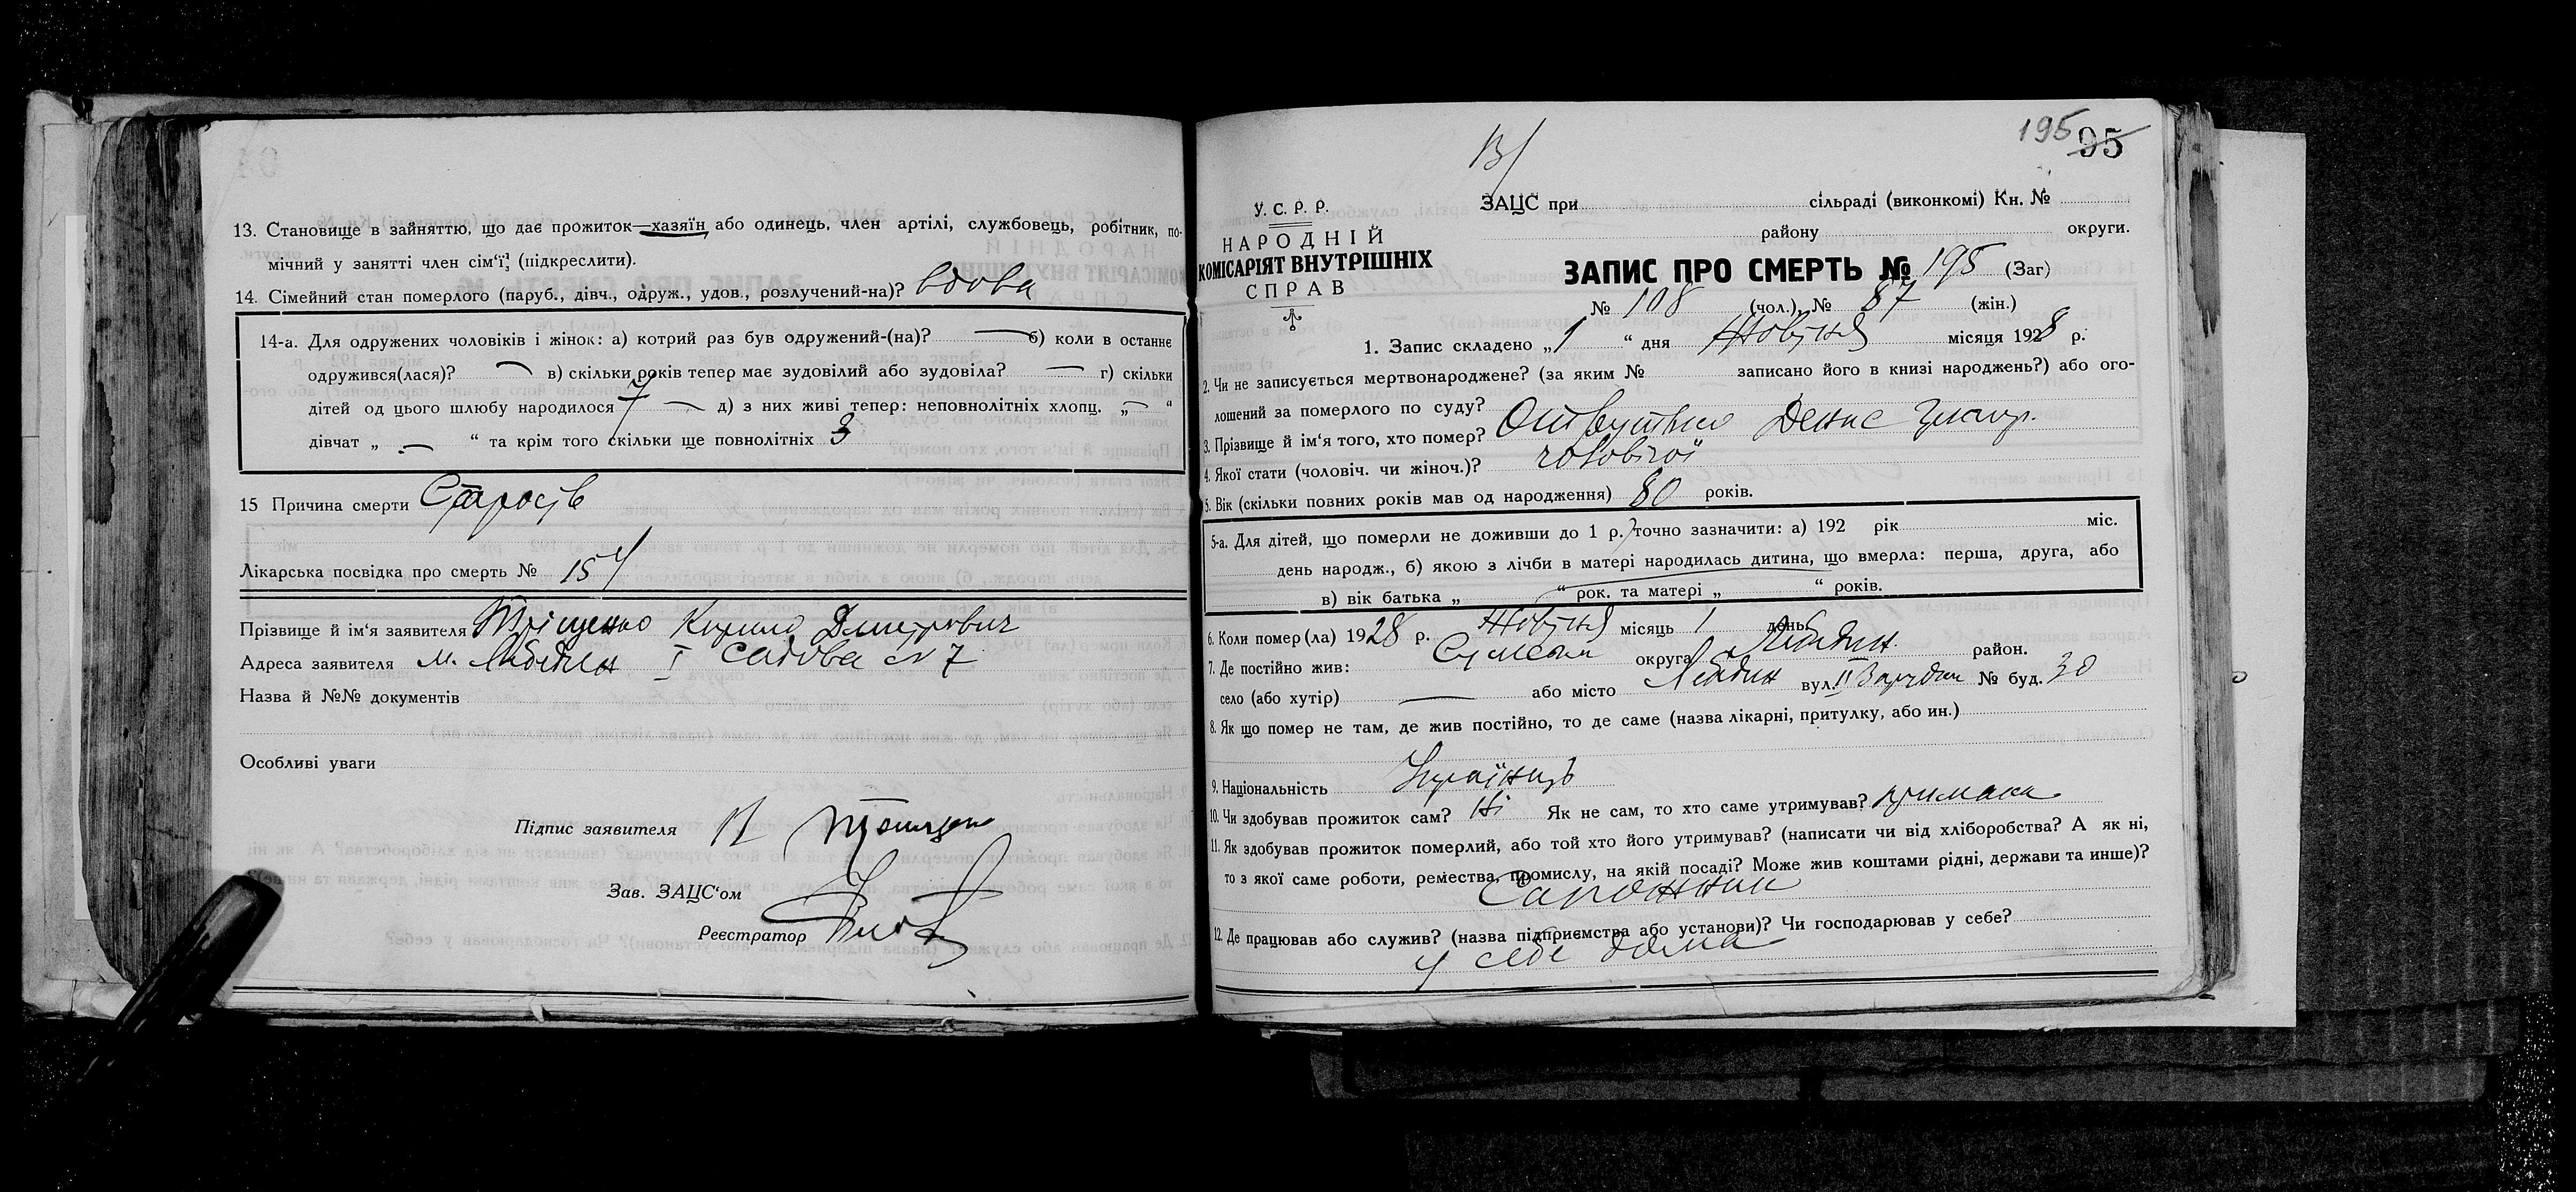 13. Становище в зайняттю, що дає прожиток—хазяїн або одинець, член артілі, службовець, робітник, по-
мічний у занятті член сім'ї (підкреслити).
14. Сімейний стан померлого (паруб., дівч., одруж., удов., розлучений-на)? вдова
14-а. Для одружених чоловіків і жінок: а) котрий раз був одружений-(на)? — б) коли в останнє
одружився(лася)? — в) скільки років тепер має зудовілий або зудовіла? — г) скільки
дітей од цього шлюбу народилося 7 — д) з них живі тепер: неповнолітніх хлопц. „ — “
дівчат „ — “ та крім того скільки ще повнолітніх 3
15 Причина смерти Старість
Лікарська посвідка про смерть № 154
Прізвище й ім'я заявителя Кирило Дмитрович
Адреса заявителя м. Лебедин I Садова № 7
Назва й №№ документів
Особливі уваги
Підпис заявителя
Зав. ЗАЦС'ом
Реєстратор
195 95
У. С. Р. Р.
НАРОДНІЙ
КОМІСАРІЯТ ВНУТРІШНІХ
СПРАВ
ЗАЦС при сільраді (виконкомі) Кн. №
району округи.
ЗАПИС ПРО СМЕРТЬ № 195 (Заг)
№ 108 (чол.), № 87 (жін.)
1. Запис складено „1“ дня Жовтня місяця 1928 р.
2. Чи не записується мертвонароджене? (за яким № записано його в книзі народжень?) або ого-
лошений за померлого по суду?
3. Прізвище й ім'я того, хто помер? Денис
4. Якої стати (чоловіч. чи жіноч.)? чоловічої
5. Вік (скільки повних років мав од народження) 80 років.
5-а. Для дітей, що померли не доживши до 1 р. точно зазначити: а) 192 рік міс.
день народж., б) якою з лічби в матері народилась дитина, що вмерла: перша, друга, або
в) вік батька „ “ рок. та матері „ “ років.
6. Коли помер(ла) 1928 р. Жовтня місяць 1 день
7. Де постійно жив: Сумська округа Лебедин. район.
село (або хутір) — або місто Лебедин вул. II № буд. 30
8. Як що помер не там, де жив постійно, то де саме (назва лікарні, притулку, або ин.)
9. Національність Українець
10. Чи здобував прожиток сам? Ні Як не сам, то хто саме утримував?
11. Як здобував прожиток померлий, або той хто його утримував? (написати чи від хліборобства? А як ні,
то з якої саме роботи, ремества, промислу, на якій посаді? Може жив коштами рідні, держави та инше)?
Сапожник
12. Де працював або служив? (назва підприємства або установи)? Чи господарював у себе?
у себе дома